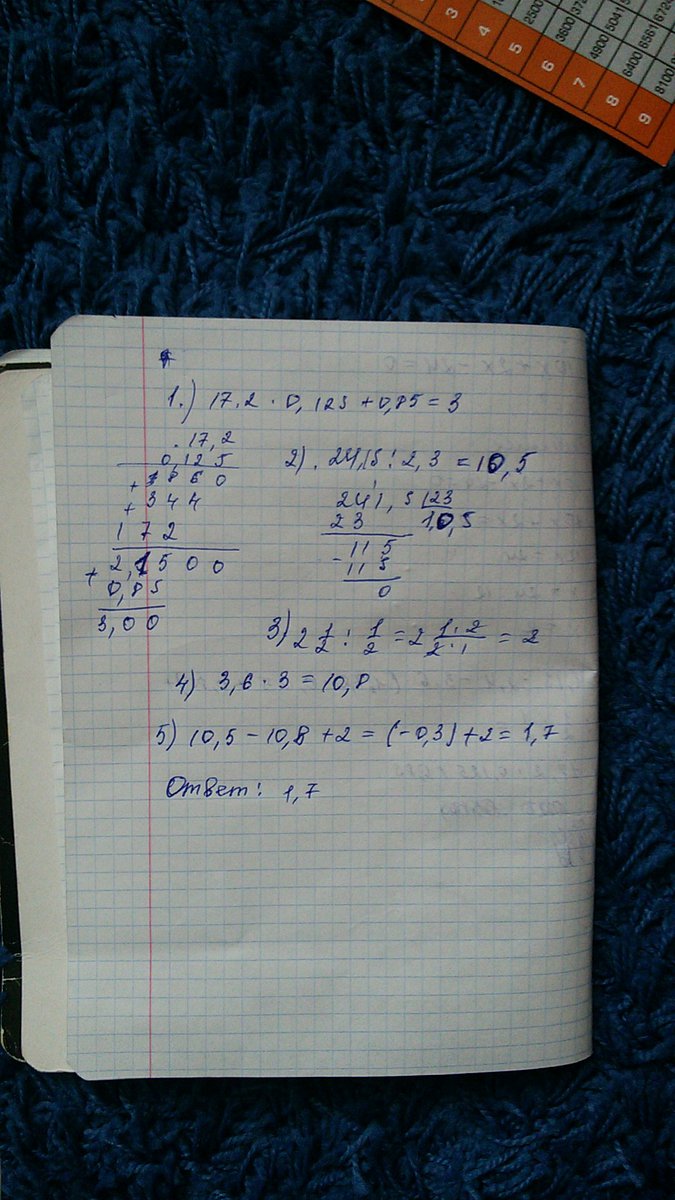 1.) 17,2 · 0,125 + 0,85 = 3
17,2
0,125
+ 860
+ 344
172
+ 2,1500
0,85
3,00
2) 24,15 : 2,3 = 10,5
241,5 | 23
23 10,5
- 115
115
0
3) 2 1/2 : 1/2 = 2 1·2/2·1 = 2
4) 3,6 · 3 = 10,8
5) 10,5 - 10,8 + 2 = (-0,3) + 2 = 1,7
Ответ: 1,7
3
4
5
6
7
8
9
2500
3600
4900
6400
8100
6561